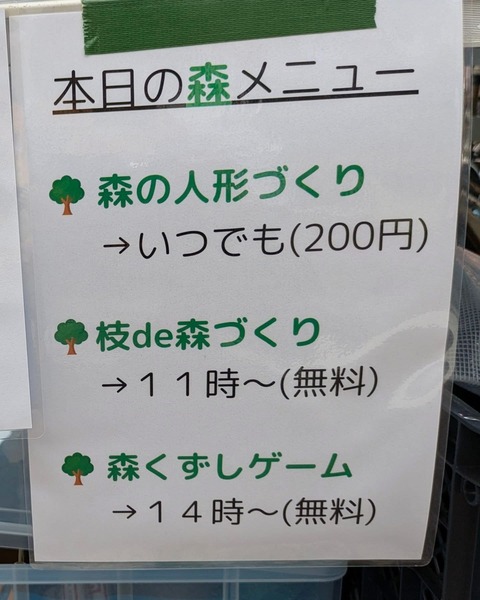 本日の森メニュー
森の人形づくり
→いつでも(200円)
枝de森づくり
→11時~(無料)
森くずしゲーム
→14時~(無料)